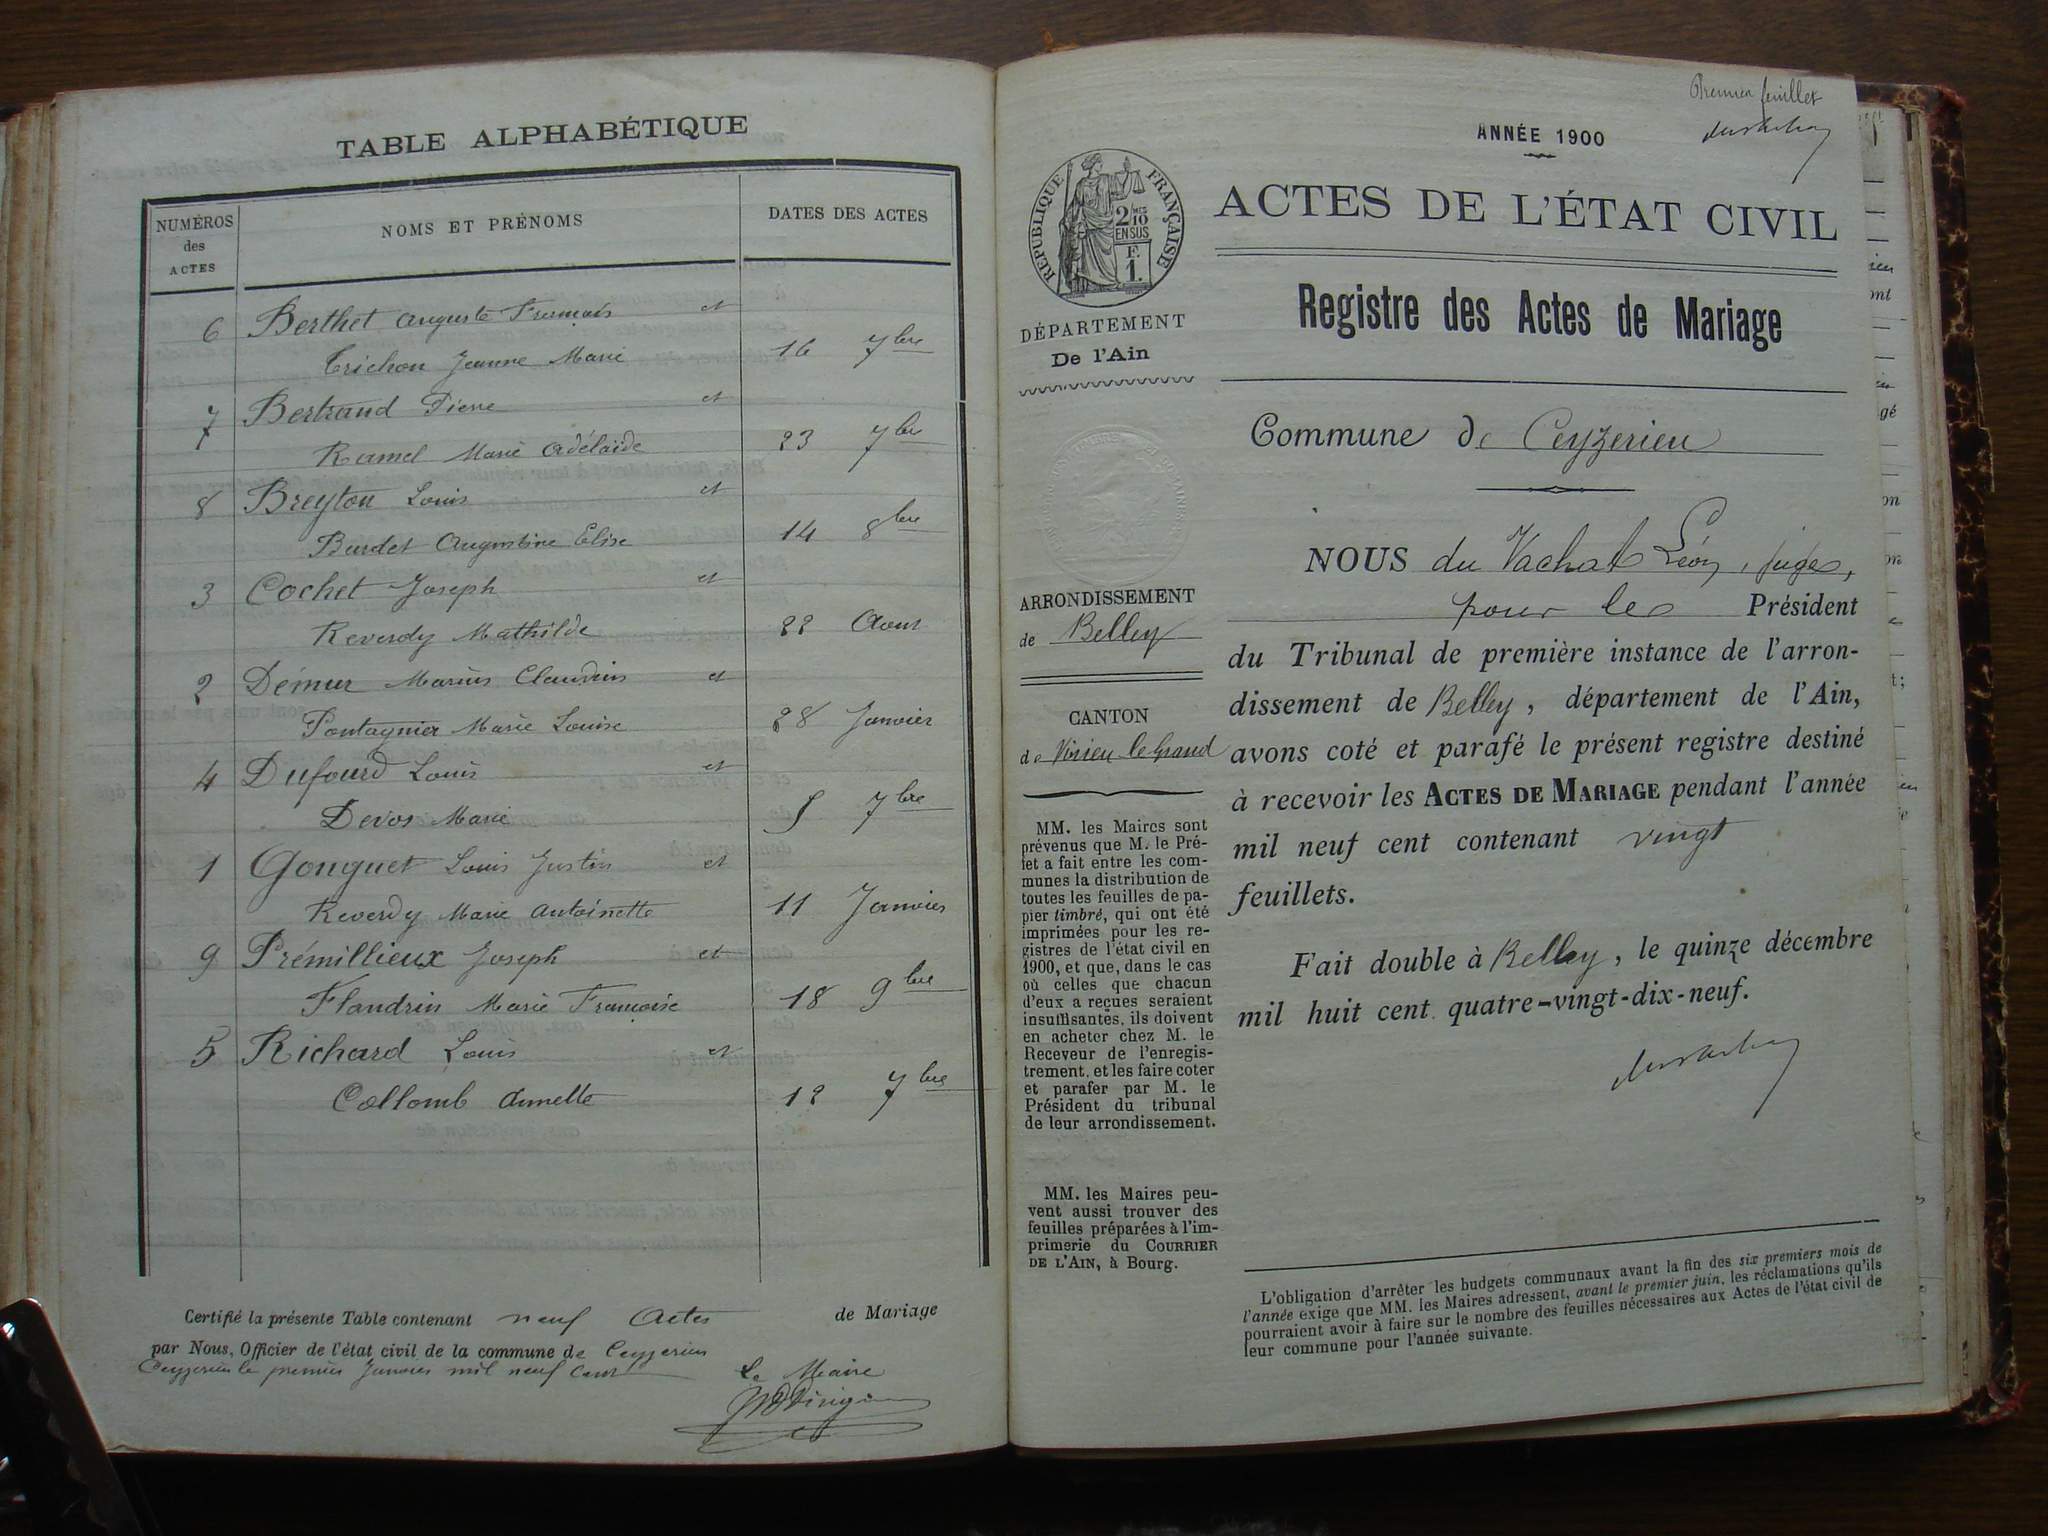 TABLE ALPHABÉTIQUE
NUMÉROS
des
ACTES
NOMS ET PRÉNOMS
DATES DES ACTES
6 Berthet Auguste François et
Trichon Jeanne Marie 16 7bre
7 Bertrand Pierre et
Ramel Marie Adélaïde 23 7bre
8 Breyton Louis et
Burdet Augustine Elise 14 8bre
3 Cochet Joseph et
Reverdy Mathilde 22 Aout
2 Démur Marius Claudius et
Pontagnier Marie Louise 28 Janvier
4 Dufourd Louis et
Devos Marie 5 7bre
1 Gonguet Louis Justin et
Reverdy Marie Antoinette 11 Janvier
9 Prémillieux Joseph et
Flandrin Marie Françoise 18 9bre
5 Richard Louis et
Collomb Annette 12 7bre
Certifié la présente Table contenant neuf Actes de Mariage
par Nous, Officier de l'état civil de la commune de Ceyzerieu
Ceyzerieu le premier Janvier mil neuf cent
Le Maire
Premier feuillet
ANNÉE 1900
RÉPUBLIQUE FRANÇAISE
2/10 MES
EN SUS
F.
1.
ACTES DE L'ÉTAT CIVIL
Registre des Actes de Mariage
DÉPARTEMENT
De l'Ain
Commune de Ceyzerieu
ARRONDISSEMENT
de Belley
CANTON
de Virieu le Grand
MM. les Maires sont
prévenus que M. le Pré-
fet a fait entre les com-
munes la distribution de
toutes les feuilles de pa-
pier timbré, qui ont été
imprimées pour les re-
gistres de l'état civil en
1900, et que, dans le cas
où celles que chacun
d'eux a reçues seraient
insuffisantes, ils doivent
en acheter chez M. le
Receveur de l'enregis-
trement, et les faire coter
et parafer par M. le
Président du tribunal
de leur arrondissement.
MM. les Maires peu-
vent aussi trouver des
feuilles préparées à l'im-
primerie du COURRIER
DE L'AIN, à Bourg.
NOUS du Vachat Léon, juge,
pour le Président
du Tribunal de première instance de l'arron-
dissement de Belley, département de l'Ain,
avons coté et parafé le présent registre destiné
à recevoir les ACTES DE MARIAGE pendant l'année
mil neuf cent contenant vingt
feuillets.
Fait double à Belley, le quinze décembre
mil huit cent quatre-vingt-dix-neuf.
L'obligation d'arrêter les budgets communaux avant la fin des six premiers mois de
l'année exige que MM. les Maires adressent, avant le premier juin, les réclamations qu'ils
pourraient avoir à faire sur le nombre des feuilles nécessaires aux Actes de l'état civil de
leur commune pour l'année suivante.